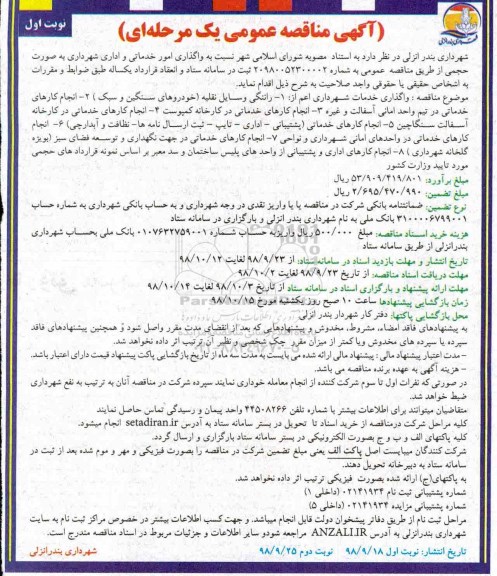 نوبت اول
(آگهی مناقصه عمومی یک مرحله‌ای)
شهرداری بندر انزلی در نظر دارد به استناد مصوبه شورای اسلامی شهر نسبت به واگذاری امور خدماتی و اداری شهرداری به صورت
حجمی از طریق مناقصه عمومی به شماره ۲۰۹۸۰۰۵۲۳۰۰۰۰۲ ثبت در سامانه ستاد و انعقاد قرارداد یکساله طبق ضوابط و مقررات
به اشخاص حقیقی یا حقوقی واجد صلاحیت به شرح ذیل اقدام نماید.
موضوع مناقصه : واگذاری خدمات شهرداری اعم از: ۱- رانندگی وسایل نقلیه (خودروهای سنگین و سبک ) ۲- انجام کارهای
خدماتی در تیم واحد امانی آسفالت و غیره ۳- انجام کارهای خدماتی در کارخانه کمپوست ۴- انجام کارهای خدماتی در کارخانه
آسفالت سنگاچین ۵- انجام کارهای خدماتی (پشتیبانی - اداری - تایپ - ثبت ارسال نامه ها - نظافت و آبدارچی) ۶- انجام
کارهای خدماتی در واحدهای امانی شهرداری و نواحی ۷- انجام کارهای خدماتی در جهت نگهداری و توسعه فضای سبز (بویژه
گلخانه شهرداری ) ۸- انجام کارهای اداری و پشتیبانی از واحد های پلیس ساختمان و سد معبر بر اساس نمونه قرارداد های حجمی
مورد تایید وزارت کشور
مبلغ برآورد: ۵۳/۹۰۹/۴۱۹/۸۰۱ ریال
مبلغ تضمین: ۲/۶۹۵/۴۷۰/۹۹۰ ریال
نوع تضمین: ضمانتنامه بانکی شرکت در مناقصه یا یا واریز نقدی در وجه شهرداری و به حساب بانکی شهرداری به شماره حساب
۳۱۰۰۰۰۶۷۹۹۰۰۱ بانک ملی به نام شهرداری بندر انزلی و بارگزاری در سامانه ستاد
هزینه خرید اسناد مناقصه: مبلغ ۵۰۰/۰۰۰ ریال واریز به حساب شماره ۰۱۰۷۶۳۲۷۵۹۰۰۱ بانک ملی بحساب شهرداری
بندرانزلی از طریق سامانه ستاد
تاریخ انتشار و مهلت بازدید اسناد در سامانه ستاد: از ۹۸/۹/۲۳ لغایت ۹۸/۱۰/۱۲
مهلت دریافت اسناد مناقصه: از تاریخ ۹۸/۹/۲۳ لغایت ۹۸/۱۰/۲
مهلت ارائه پیشنهاد و بارگزاری اسناد در سامانه ستاد از تاریخ ۹۸/۱۰/۳ لغایت ۹۸/۱۰/۱۴
زمان بازگشایی پیشنهادها ساعت ۱۰ صبح روز یکشنبه مورخ ۹۸/۱۰/۱۵
محل بازگشایی پاکتها: دفتر کار شهردار بندر انزلی
به پیشنهادهای فاقد امضاء، مشروط، مخدوش و پیشنهادهایی که بعد از انقضای مدت مقرر واصل شود و همچنین پیشنهادهای فاقد
سپرده یا سپرده های مخدوش ویا کمتر از میزان مقرر چک شخصی و نظیر آن ترتیب اثر داده نخواهد شد.
- مدت اعتبار پیشنهاد مالی : پیشنهاد مالی ارائه شده می بایست به مدت سه ماه از تاریخ بازگشایی پاکت پیشنهاد قیمت دارای اعتبار باشد.
- هزینه آگهی به عهده برنده مناقصه می باشد.
در صورتی که نفرات اول تا سوم شرکت کننده از انجام معامله خودداری نمایند سپرده شرکت در مناقصه آنان به ترتیب به نفع شهرداری
ضبط خواهد شد.
متقاضیان میتوانند برای اطلاعات بیشتر با شماره تلفن ۴۴۵۰۸۲۶۶ واحد پیمان و رسیدگی تماس حاصل نمایند
کلیه مراحل شرکت درمناقصه از خرید اسناد تا تحویل در بستر سامانه ستاد به آدرس setadiran.ir انجام میشود.
کلیه پاکتهای الف و ب و ج بصورت الکترونیکی در بستر سامانه ستاد بارگزاری و ارسال گردد.
شرکت کنندگان میبایست اصل پاکت الف یعنی مبلغ تضمین شرکت در مناقصه را بصورت فیزیکی و مهر و موم شده بعد از ثبت در
سامانه ستاد به دبیرخانه تحویل دهند.
به پاکتهای(ج) ارائه شده بصورت فیزیکی ترتیب اثر داده نخواهد شد.
شماره پشتیبانی ثبت نام ۰۲۱۴۱۹۳۴ (داخلی ۱)
شماره پشتیبانی مزایده ۰۲۱۴۱۹۳۴ (داخلی ۵)
مراحل ثبت نام از طریق دفاتر پیشخوان دولت قابل انجام میباشد. و جهت کسب اطلاعات بیشتر در خصوص مراکز ثبت نام به سایت
شهرداری بندرانزلی به آدرس ANZALI.IR مراجعه شودو سایر اطلاعات و جزئیات مربوط در اسناد مناقصه مندرج است.
تاریخ انتشار: نوبت اول ۹۸/۹/۱۸ نوبت دوم ۹۸/۹/۲۵
شهرداری بندرانزلی